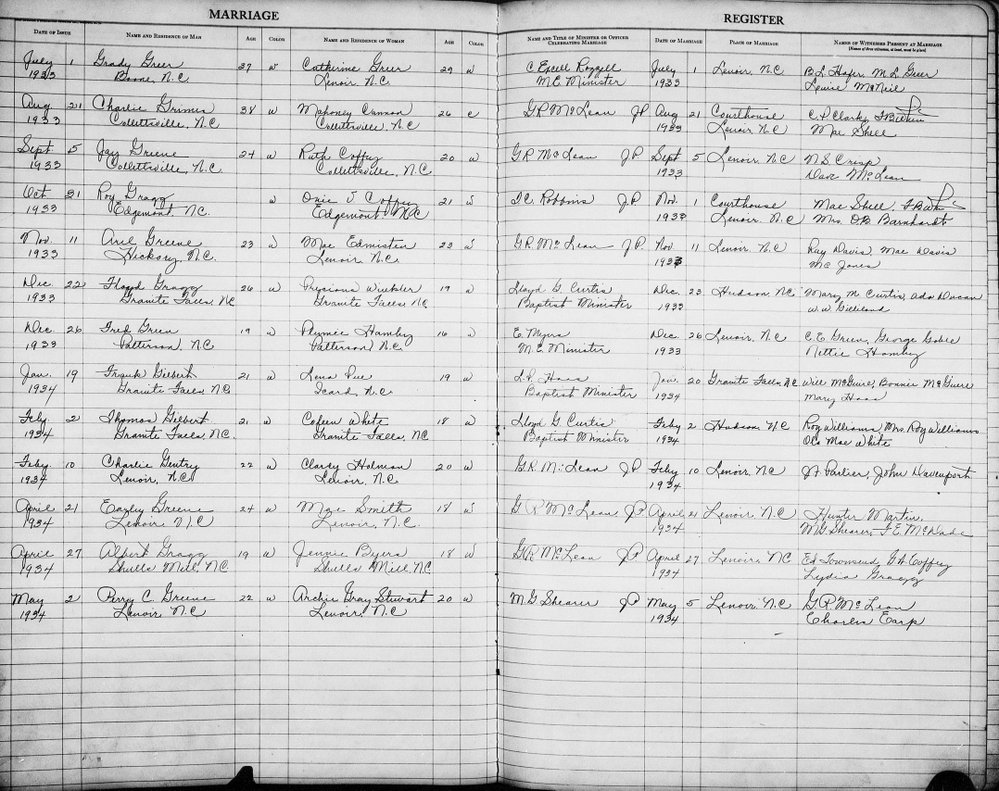 MARRIAGE
REGISTER
DATE OF ISSUE NAME AND RESIDENCE OF MAN AGE COLOR NAME AND RESIDENCE OF WOMAN AGE COLOR NAME AND TITLE OF MINISTER OR OFFICER CELEBRATING MARRIAGE DATE OF MARRIAGE PLACE OF MARRIAGE NAMES OF WITNESSES PRESENT AT MARRIAGE
July 1 Grady Greer 27 W Catherine Greer 29 W C Excell Rozzell July 1 Lenoir, N.C B.L. Hafer, M.L. Greer
1933 Boone, N.C. Lenoir, N.C. M.E. Minister 1933 Lewie McNeil
Aug 21 Charlie Grimes 38 W Mahoney Cannon 26 c G.R. McLean JP Aug 21 Courthouse C.P. Clark,
1933 Collettsville, N.C Collettsville, N.C 1933 Lenoir, N.C Mae Shell
Sept 5 Jay Greene 24 W Ruth Coffey 20 W G.R. McLean JP Sept 5 Lenoir, N.C N.S. Crisp
1933 Collettsville, N.C Collettsville, N.C. 1933 Dave McLean
Oct 21 Roy Gragg W Onie J Coffey 21 W D.C. Robbins JP Nov. 1 Courthouse Mae Shell,
1933 Edgemont, NC. Edgemont, N.C 1933 Lenoir, N.C Mrs. O.B. Barnhardt
Nov. 11 Avie Greene 23 W Mae Edmisten 22 W G.R. McLean JP Nov 11 Lenoir, N.C Ray Davis, Mae Davis
1933 Hickory, N.C. Lenoir, N.C. 1933 Mc Jones
Dec 22 Floyd Gragg 26 W Precious Winkler 19 W Lloyd G. Curtis Dec. 23 Hudson, NC Mary M Curtis, Ada Duncan
1933 Granite Falls, NC Granite Falls, NC Baptist Minister 1933 W.W. Gilliland
Dec. 26 Fred Green 19 W Hamby 16 W E. Myers Dec 26 Lenoir, N.C C.E. Green, George Goble
1933 Patterson, N.C Patterson, N.C. M.E. Minister 1933 Nettie Hamby
Jan. 19 Frank Gilbert 21 W Lona Pue 19 W Haas Jan. 20 Granite Falls, N.C Will McGuire, Bonnie McGuire
1934 Granite Falls, N.C Icard, N.C. Baptist Minister 1934 Mary Haas
Feby 2 Thomas Gilbert 21 W White 18 W Lloyd G Curtis Feby 2 Hudson N.C Roy Williams, Mrs. Roy Williams
1934 Granite Falls, N.C. Granite Falls, N.C Baptist Minister 1934 Ola Mae White
Feby 10 Charlie Gentry 22 W Clarsy Holman 20 W G.R. McLean JP Feby 10 Lenoir, N.C Parlier, John Davenport
1934 Lenoir, N.C Lenoir, N.C 1934
April 21 Earley Greene 24 W Mae Smith 18 W G.R. McLean JP April 21 Lenoir, N.C Hunter Martin,
1934 Lenoir N.C Lenoir, N.C. 1934 M.G. Shearer, F.E. McDade
April 27 Albert Gragg 19 W Jennie Byers 18 W G.R. McLean JP April 27 Lenoir, N.C Ed Townsend, Coffey
1934 Shulls Mill, N.C Shulls Mill, N.C. 1934 Lydia Gragg
May 2 Perry C. Greene 22 W Archie Gray Stewart 20 W M.G. Shearer JP May 5 Lenoir, N.C G.R. McLean
1934 Lenoir, N.C Lenoir, N.C 1934 Charles Earp